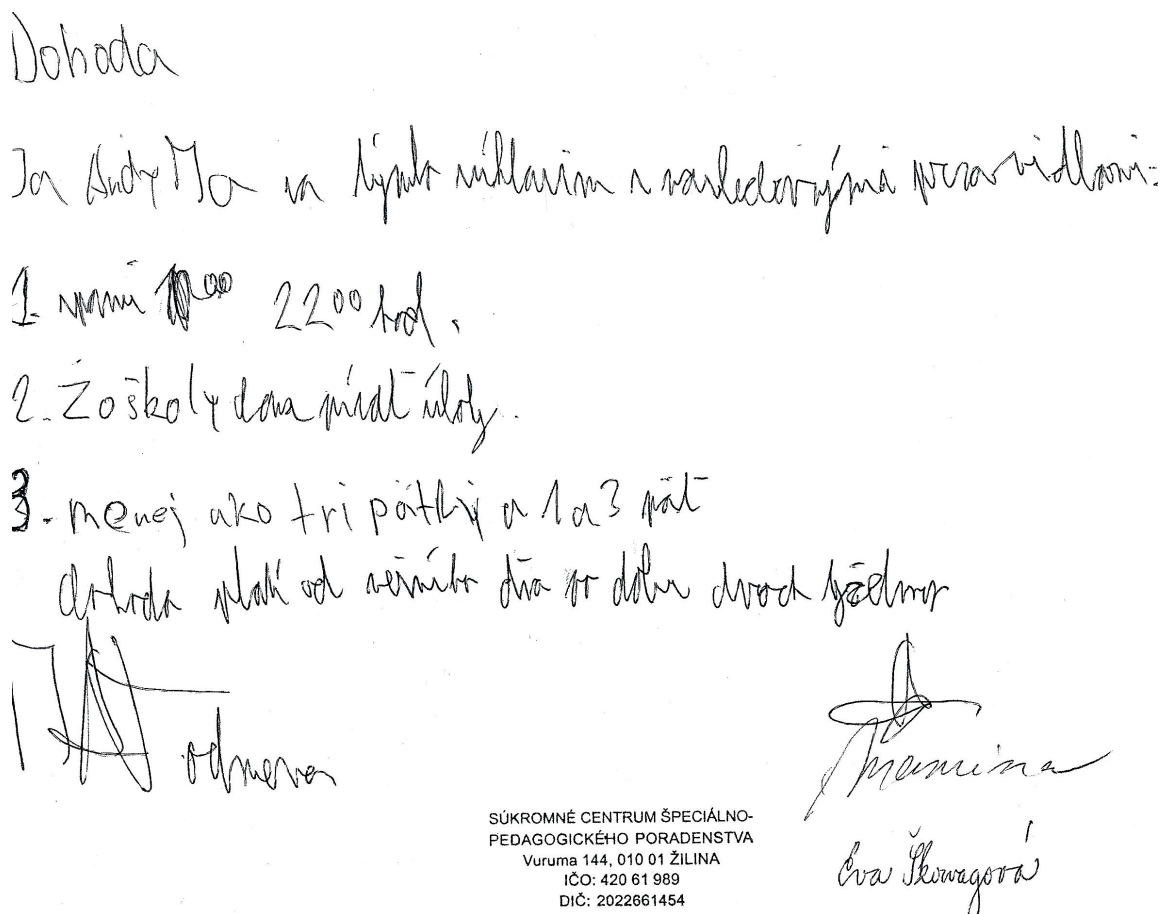 Dohoda
Ja Andy Ma sa týmto súhlasím s nasledovnými pravidlami:
1. spani 22 00 hod.
2. Zo školy doma písať úlohy.
3. menej ako tri pätky a 1 a 3 päť
dohoda platí od dňa po dobu dvoch týždnov
odmena
mamina
Eva
SÚKROMNÉ CENTRUM ŠPECIÁLNO-
PEDAGOGICKÉHO PORADENSTVA
Vuruma 144, 010 01 ŽILINA
IČO: 420 61 989
DIČ: 2022661454